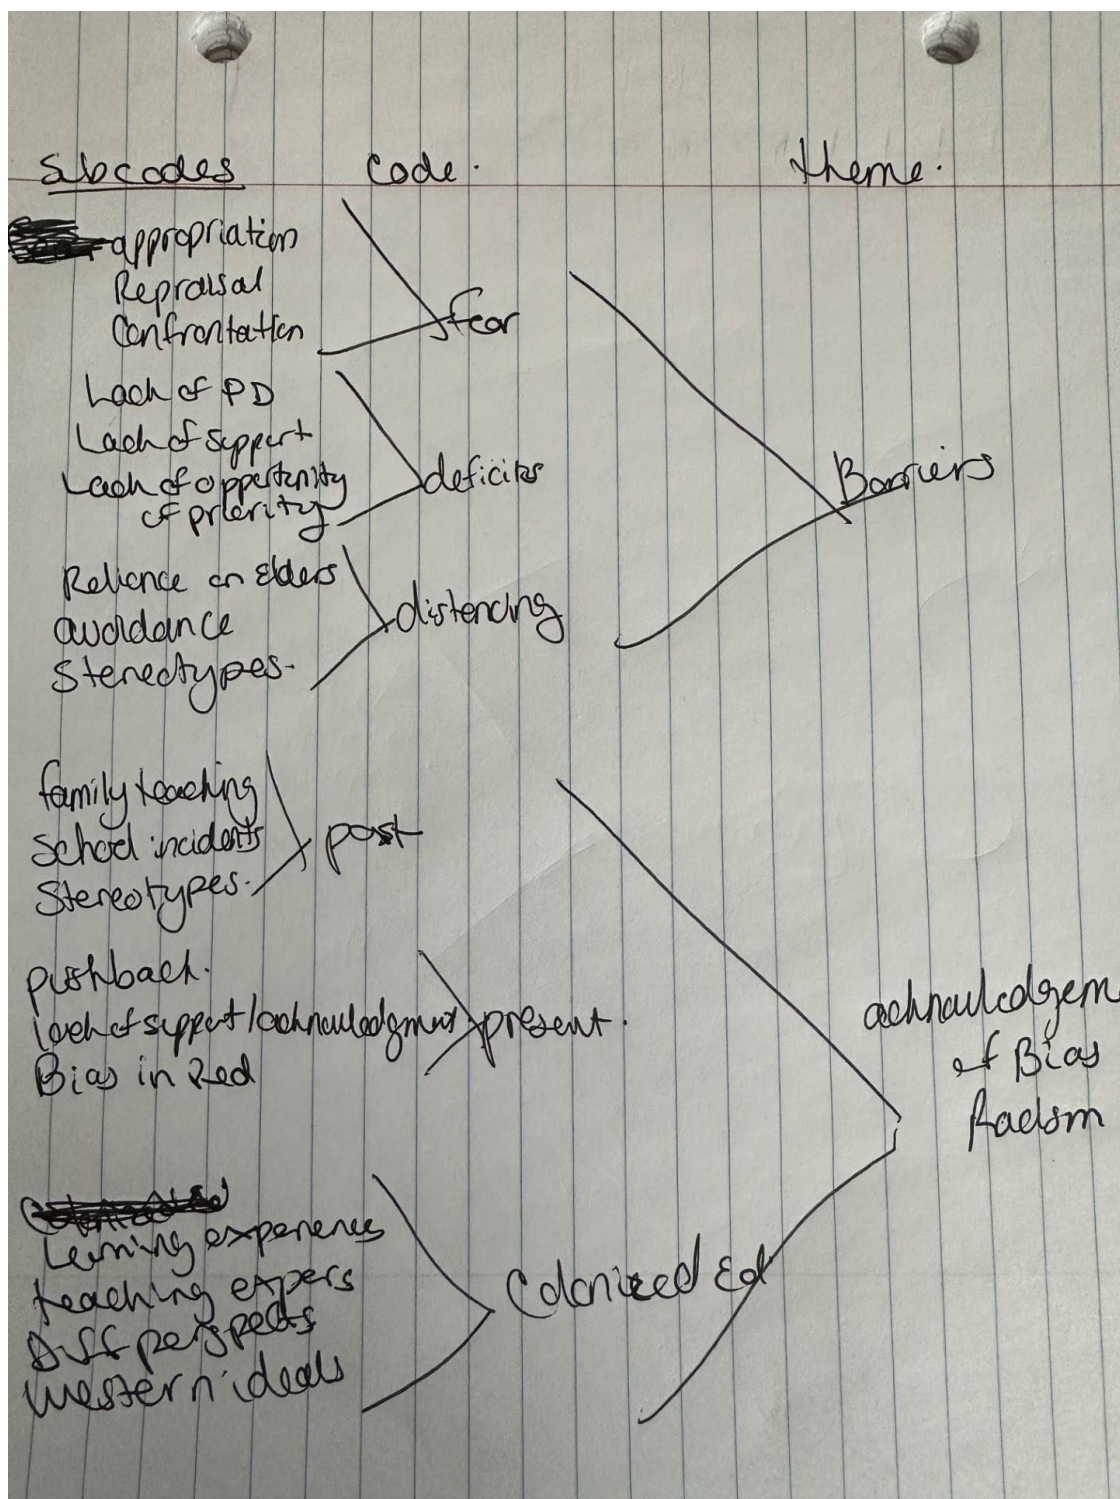 Subcodes Code. theme.
appropriation
Repraisal
Confrontation
fear
Lack of PD
Lack of support
Lack of oppertunity
of priority
deficits
Barriers
Reliance on Elders
avoidance
Stereotypes.
distancing
family teaching
School incidents
Stereotypes.
past
pushback.
lack of support/acknowledgment
present.
Bias in
acknowledgem
of Bias
Racism
Learning experiences
teaching expers
Diff perspects
Western ideals
Colonized Ed